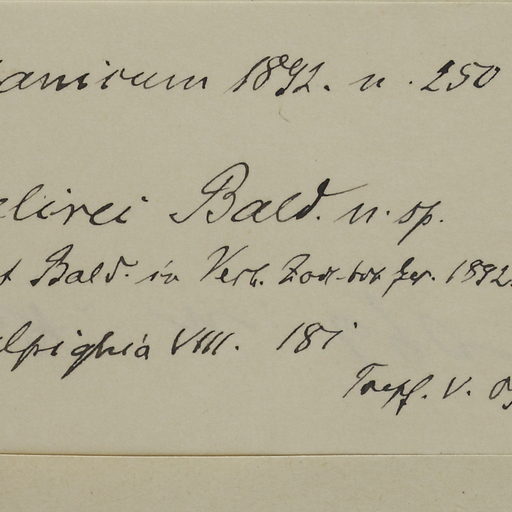 anicum 1892. n. 250
elirei Bald. n. sp.
t Bald. in Verh. Zool-bot Ges. 1892.
lpighia VIII. 181
V.